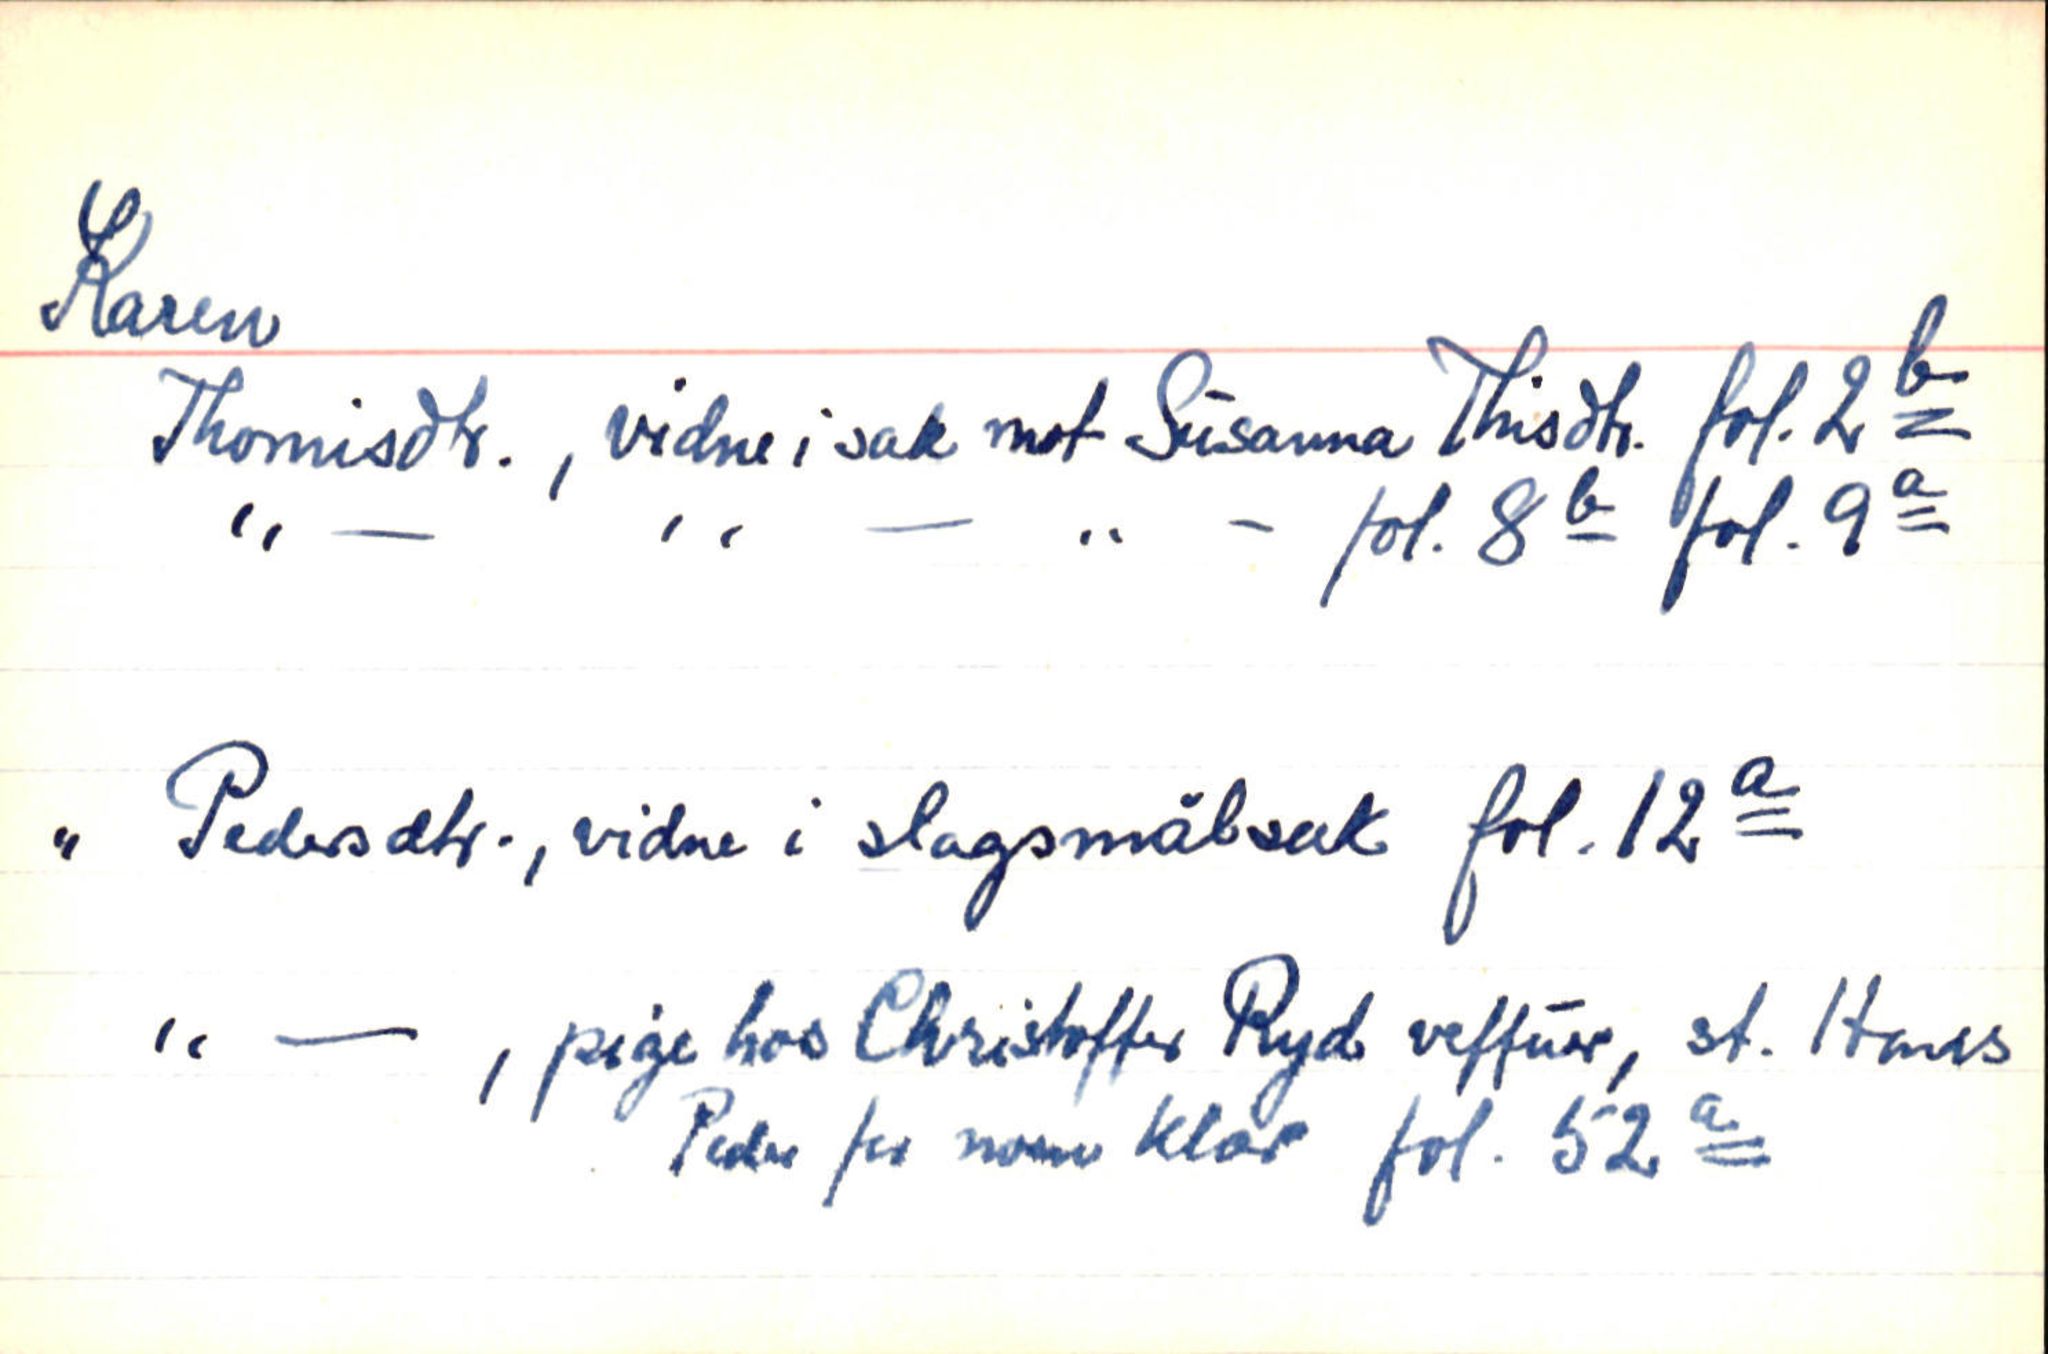 Karen
Thomisdtr., vidne i sak mot Susanna Thisdtr. fol. 2 b
" — " — " - fol. 8 b fol. 9 a
" Pedersdtr., vidne i slagsmålsak fol. 12 a
" — , pige hos Christoffer Ryd st. Hans
Peder for klar fol. 52 a